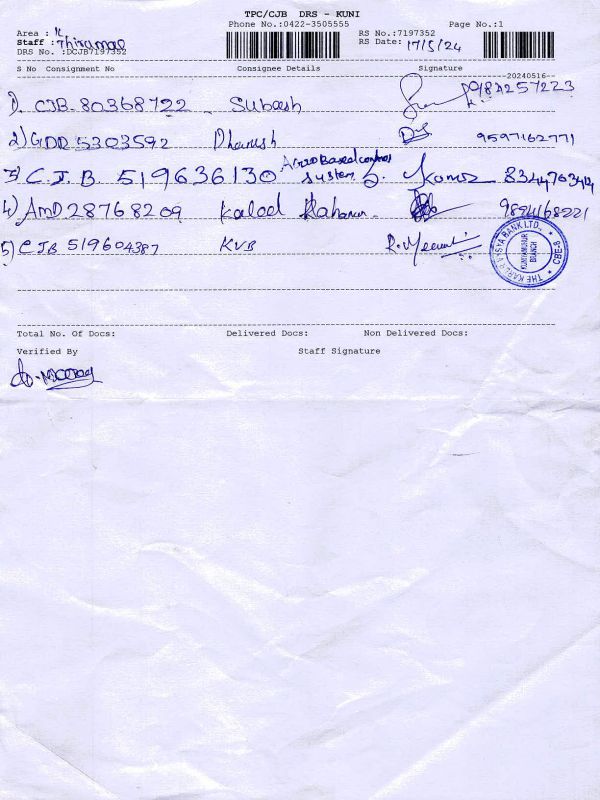 TPC/CJB DRS - KUNI
Phone No.:0422-3505555 Page No.:1
Area : K RS No.:7197352
Staff : Thirumal RS Date: 17/5/24
DRS No. :DCJB7197352
S No Consignment No Consignee Details Signature
20240516
1) CJB 80368722 Subash 9184257223
2) GDR 5303592 Dhanush 9597162771
3) C.J.B. 519636130 Based control system Kumar
4) AMD 28768209 Kalod Rahman 9894168221
5) CJB 519604387 KVB R. Meena
THE KARUR VYSYA BANK LTD., KUNIYAMUTHUR BRANCH CBE-8
Total No. Of Docs: Delivered Docs: Non Delivered Docs:
Verified By Staff Signature